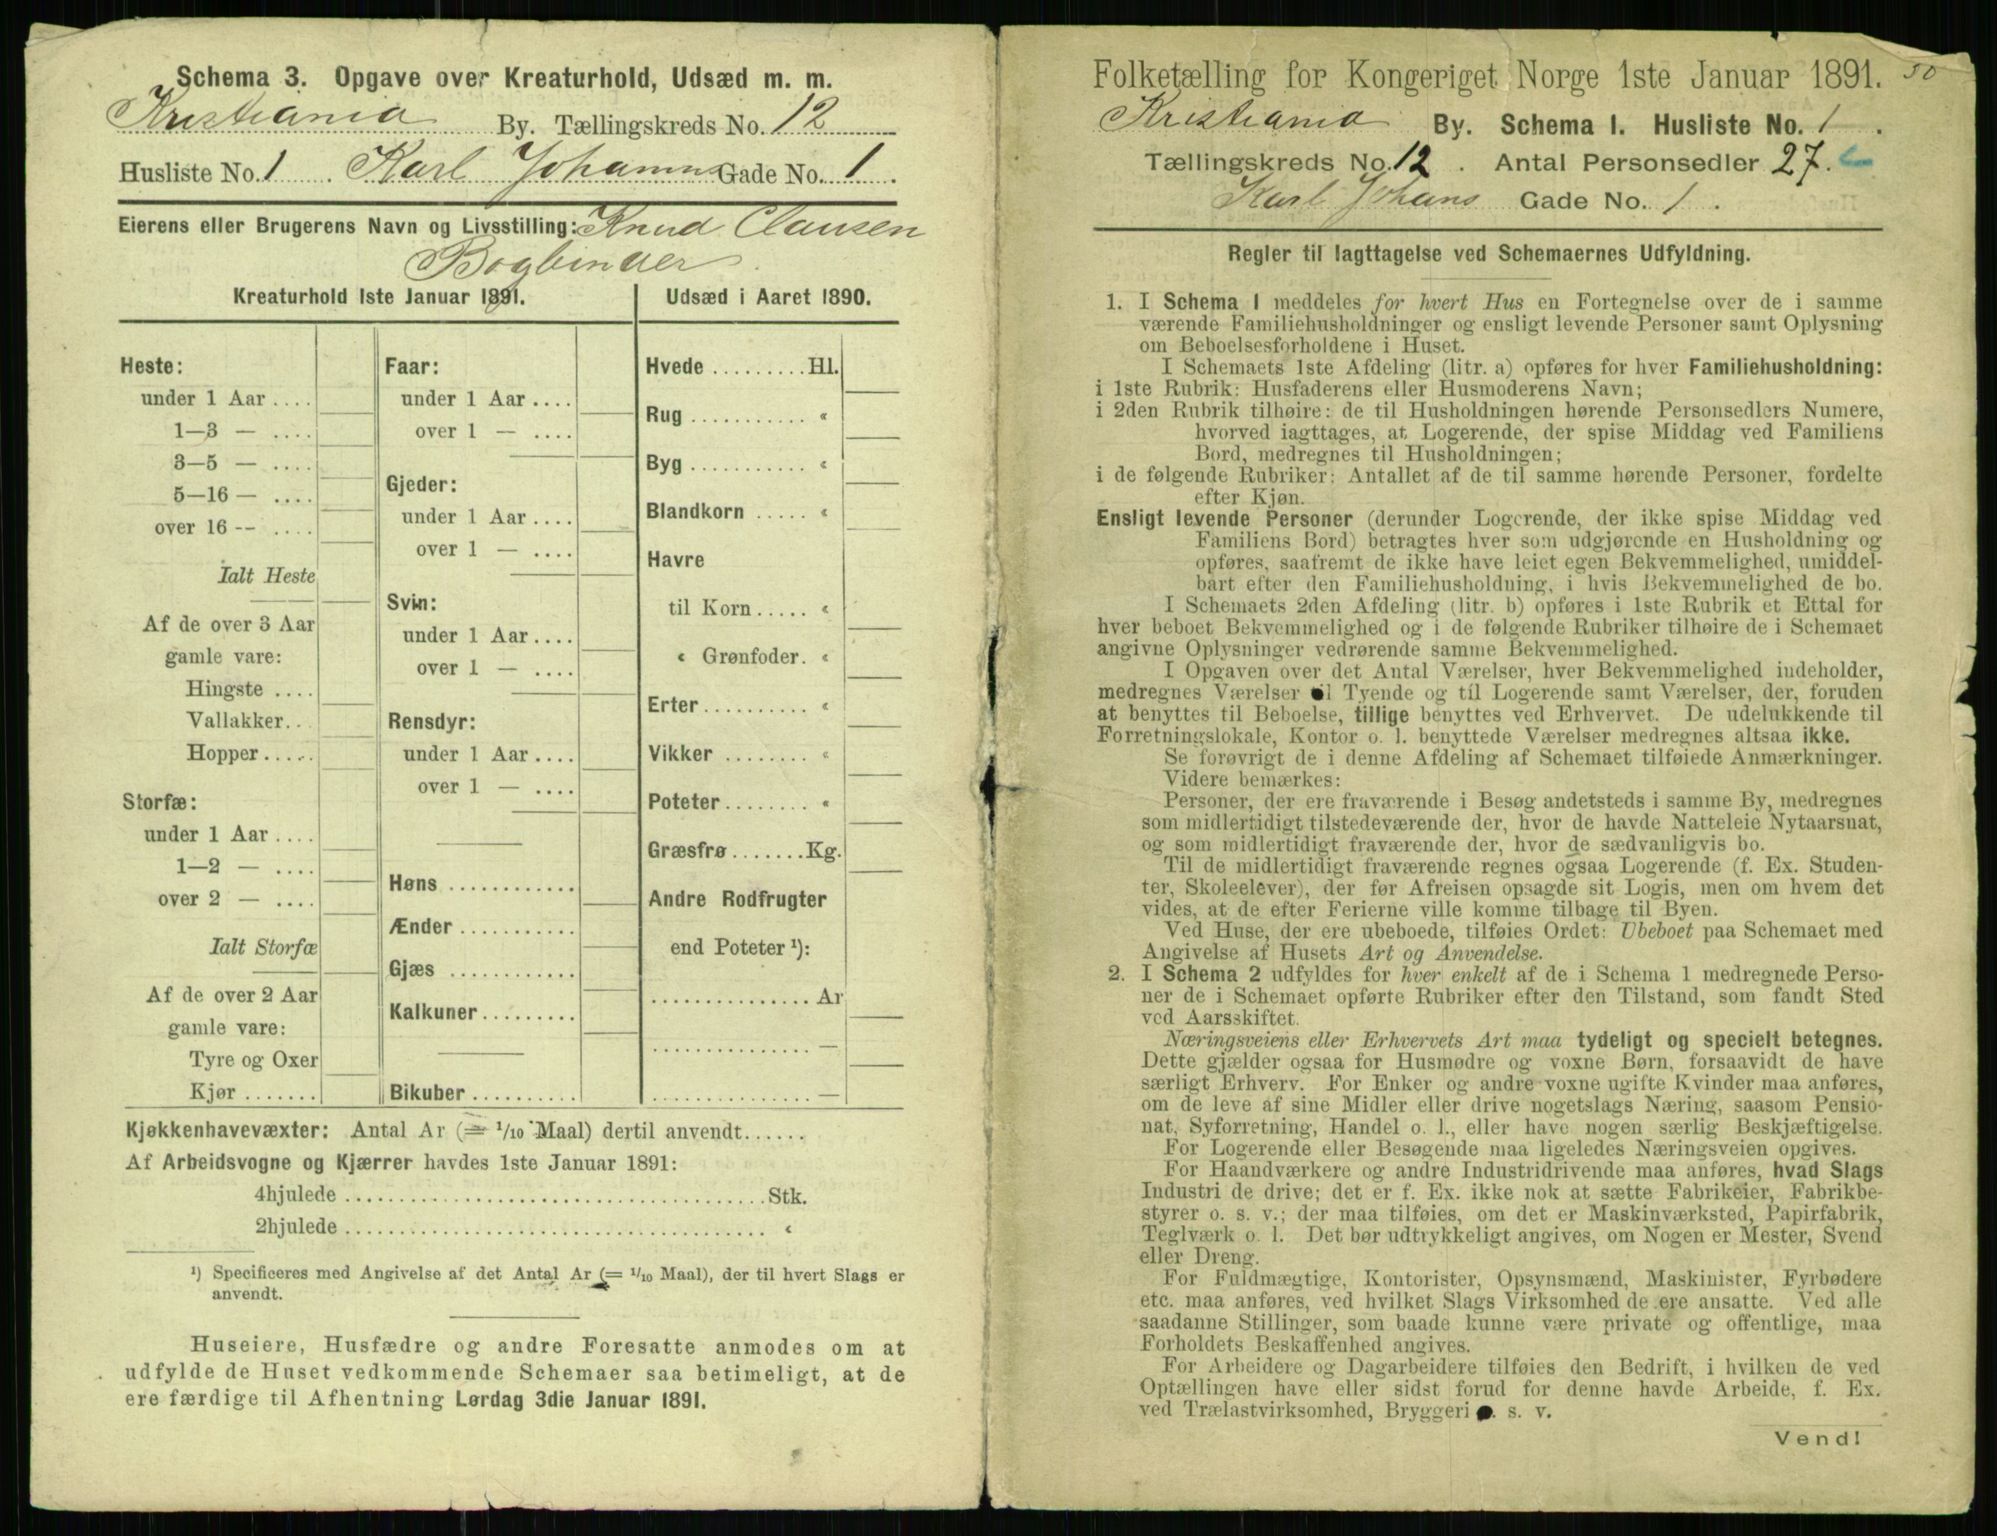 Schema 3. Opgave over Kreaturhold, Udsæd m. m.
Kristiania By. Tællingskreds No. 12
Husliste No. 1. Karl Johanns Gade No. 1.
Eierens eller Brugerens Navn og Livsstilling: Knud Clausen
Bogbinder.
Kreaturhold 1ste Januar 1891.
Heste:
under 1 Aar ....
1—3 — ....
3—5 — ....
5—16 — ....
over 16 -- ....
Ialt Heste
Af de over 3 Aar
gamle vare:
Hingste ....
Vallakker...
Hopper.....
Storfæ:
under 1 Aar ....
1—2 — ....
over 2 — ....
Ialt Storfæ
Af de over 2 Aar
gamle vare:
Tyre og Oxer
Kjør .......
Faar:
under 1 Aar ....
over 1 — ....
Gjeder:
under 1 Aar ....
over 1 — ....
Svin:
under 1 Aar ....
over 1 — ....
Rensdyr:
under 1 Aar ....
over 1 — ....
Høns ............
Ænder ...........
Gjæs ............
Kalkuner .........
Bikuber ..........
Udsæd i Aaret 1890.
Hvede ......... Hl.
Rug ........... «
Byg ........... «
Blandkorn ..... «
Havre
til Korn ..... «
« Grønfoder. «
Erter .......... «
Vikker ........ «
Poteter ........ «
Græsfrø ....... Kg.
Andre Rodfrugter
end Poteter ¹):
............... Ar
............... —
............... —
Kjøkkenhavevæxter: Antal Ar (= 1/10 Maal) dertil anvendt......
Af Arbeidsvogne og Kjærrer havdes 1ste Januar 1891:
4hjulede ........................................ Stk.
2hjulede ........................................ «
¹) Specificeres med Angivelse af det Antal Ar (= 1/10 Maal), der til hvert Slags er
anvendt.
Huseiere, Husfædre og andre Foresatte anmodes om at
udfylde de Huset vedkommende Schemaer saa betimeligt, at de
ere færdige til Afhentning Lørdag 3die Januar 1891.
Folketælling for Kongeriget Norge 1ste Januar 1891. 50
Kristiania By. Schema 1. Husliste No. 1.
Tællingskreds No. 12. Antal Personsedler 27.
Karl Johans Gade No. 1.
Regler til Iagttagelse ved Schemaernes Udfyldning.
1. I Schema 1 meddeles for hvert Hus en Fortegnelse over de i samme
værende Familiehusholdninger og ensligt levende Personer samt Oplysning
om Beboelsesforholdene i Huset.
I Schemaets 1ste Afdeling (litr. a) opføres for hver Familiehusholdning:
i 1ste Rubrik: Husfaderens eller Husmoderens Navn;
i 2den Rubrik tilhøire: de til Husholdningen hørende Personsedlers Numere,
hvorved iagttages, at Logerende, der spise Middag ved Familiens
Bord, medregnes til Husholdningen;
i de følgende Rubriker: Antallet af de til samme hørende Personer, fordelte
efter Kjøn.
Ensligt levende Personer (derunder Logerende, der ikke spise Middag ved
Familiens Bord) betragtes hver som udgjørende en Husholdning og
opføres, saafremt de ikke have leiet egen Bekvemmelighed, umiddel-
bart efter den Familiehusholdning, i hvis Bekvemmelighed de bo.
I Schemaets 2den Afdeling (litr. b) opføres i 1ste Rubrik et Ettal for
hver beboet Bekvemmelighed og i de følgende Rubriker tilhøire de i Schemaet
angivne Oplysninger vedrørende samme Bekvemmelighed.
I Opgaven over det Antal Værelser, hver Bekvemmelighed indeholder,
medregnes Værelser til Tyende og til Logerende samt Værelser, der, foruden
at benyttes til Beboelse, tillige benyttes ved Erhvervet. De udelukkende til
Forretningslokale, Kontor o. l. benyttede Værelser medregnes altsaa ikke.
Se forøvrigt de i denne Afdeling af Schemaet tilføiede Anmærkninger.
Videre bemærkes:
Personer, der ere fraværende i Besøg andetsteds i samme By, medregnes
som midlertidigt tilstedeværende der, hvor de havde Natteleie Nytaarsnat,
og som midlertidigt fraværende der, hvor de sædvanligvis bo.
Til de midlertidigt fraværende regnes ogsaa Logerende (f. Ex. Studen-
ter, Skoleelever), der før Afreisen opsagde sit Logis, men om hvem det
vides, at de efter Ferierne ville komme tilbage til Byen.
Ved Huse, der ere ubeboede, tilføies Ordet: Ubeboet paa Schemaet med
Angivelse af Husets Art og Anvendelse.
2. I Schema 2 udfyldes for hver enkelt af de i Schema 1 medregnede Perso-
ner de i Schemaet opførte Rubriker efter den Tilstand, som fandt Sted
ved Aarsskiftet.
Næringsveiens eller Erhvervets Art maa tydeligt og specielt betegnes.
Dette gjælder ogsaa for Husmødre og voxne Børn, forsaavidt de have
særligt Erhverv. For Enker og andre voxne ugifte Kvinder maa anføres,
om de leve af sine Midler eller drive nogetslags Næring, saasom Pensio-
nat, Syforretning, Handel o. l., eller have nogen særlig Beskjæftigelse.
For Logerende eller Besøgende maa ligeledes Næringsveien opgives.
For Haandværkere og andre Industridrivende maa anføres, hvad Slags
Industri de drive; det er f. Ex. ikke nok at sætte Fabrikeier, Fabrikbe-
styrer o. s. v.; der maa tilføies, om det er Maskinværksted, Papirfabrik,
Teglværk o. l. Det bør udtrykkeligt angives, om Nogen er Mester, Svend
eller Dreng.
For Fuldmægtige, Kontorister, Opsynsmænd, Maskinister, Fyrbødere
etc. maa anføres, ved hvilket Slags Virksomhed de ere ansatte. Ved alle
saadanne Stillinger, som baade kunne være private og offentlige, maa
Forholdets Beskaffenhed angives.
For Arbeidere og Dagarbeidere tilføies den Bedrift, i hvilken de ved
Optællingen have eller sidst forud for denne havde Arbeide, f. Ex.
ved Trælastvirksomhed, Bryggeri o. s. v.
Vend!